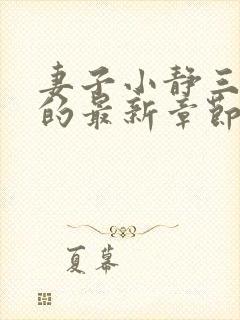 妻子小静三
的最新章节
夏幕